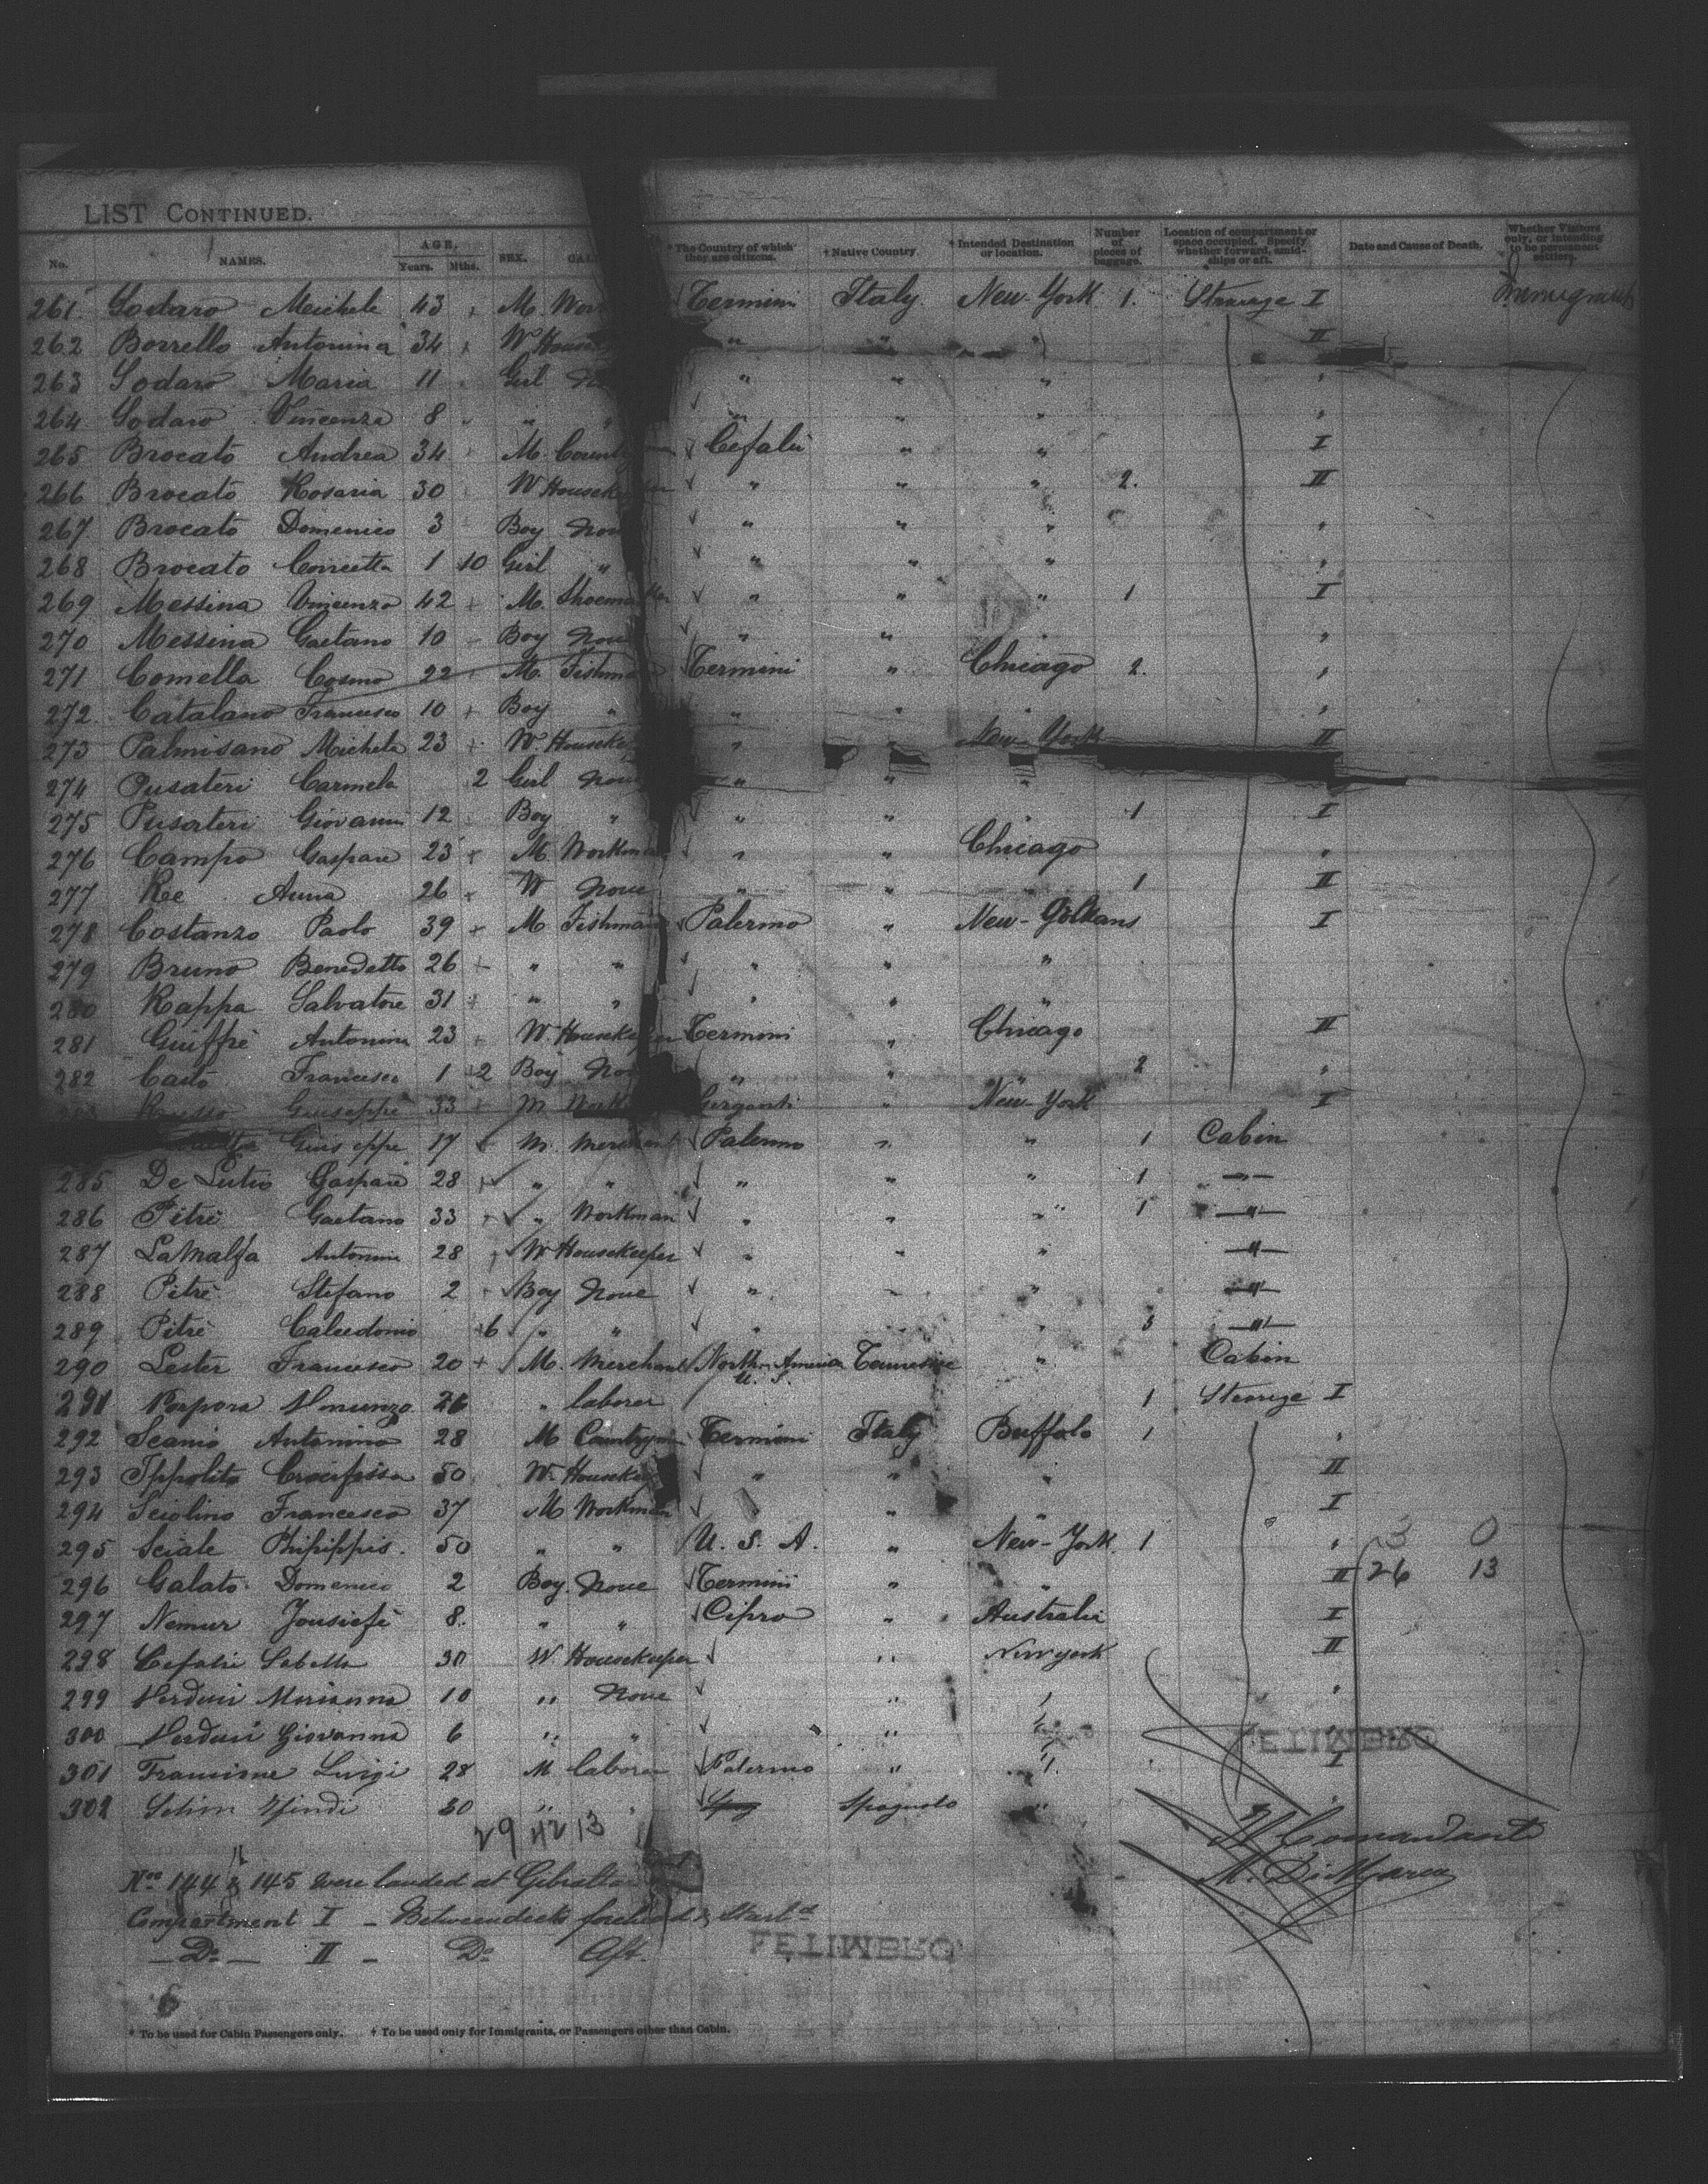 LIST CONTINUED.
No. NAMES. AGE. Years. Mths. SEX. CAL * The Country of which they are citizens. † Native Country. * Intended Destination or location. Number of pieces of baggage. Location of compartment or space occupied. Specify whether forward, amidships or aft. Date and Cause of Death. Whether Visitors only, or intending to be permanent settlers.
261. Sodaro Michele 43 M. Wor Termini Italy New-York 1. Steerage I
262 Borrello Antonina 34 W House " " " II
263 Sodaro Maria 11 Girl No " " " "
264 Sodaro Vincenza 8 " " " " " "
265 Brocato Andrea 34 M. Country man Cefalù " " I
266 Brocato Rosaria 30 W Housekeeper " " " 2. II
267 Brocato Domenico 3 Boy Non " " " "
268 Brocato Concetta 1 10 Girl " " " " "
269 Messina Vincenzo 42 M. Shoemaker " " " 1 I
270 Messina Gaetano 10 Boy None " " " "
271 Comella Cosmo 22 M. Fishman Termini " Chicago 2. "
272. Catalano Francesco 10 Boy " " " " "
273 Palmisano Michela 23 W. Houseke " " New-York II
274 Pusateri Carmela 2 Girl None " " "
275 Pusateri Giovanni 12 Boy " " " 1 I
276 Campo Gaspare 23 M. Workman " " Chicago "
277 Re Anna 26 W None " " 1 II
278 Costanzo Paolo 39 M Fishman Palermo " New-Orleans I
279 Bruno Benedetto 26 " " " " "
280 Rappa Salvatore 31 " " " " "
281 Giuffrè Antonina 23 W. Housekeeper Termini " Chicago II
282 Casto Francesco 1 2 Boy Non " " " 2 "
Russo Giuseppe 33 M Work Girgenti " New-York I
Giuseppe 17 M. Merchant Palermo " " 1 Cabin
285 De Gaspare 28 " " " " " 1 -"-
286 Pitrè Gaetano 33 " Workman " " " 1 -"-
287 LaMalfa Antonina 28 W Housekeeper " " " -"-
288 Pitrè Stefano 2 Boy None " " " -"-
289 Pitrè Calcedonio 6 " " " " 3 -"-
290 Lester Francesco 20 M. Merchant North America U. S. Tennessee " Cabin
291 Porpora 26 " laborer 1 Steerage I
292 Scanio Antonino 28 M Countryman Termini Italy Buffalo 1 "
293 Ippolito Crocifissa 50 W. Housekeep " " " II
294 Sciolino Francesco 37 M Workman " " " I
295 Sciale 50 " " U. S. A. " New-York. 1 " 3 0
296 Galato Domenico 2 Boy. None Termini " " II 26 13
297 Nemur 8. " " Cipro " Australia I
298 Cefalù 30 W. Housekeeper " New york II
299 Verduri Marianna 10 " None " " "
300 Verduri Giovanna 6 " " " " "
301 Luigi 28 M laborer Palermo " " I
302 30 " " Spagnolo "
29 42 13
Nos 144 & 145 were landed at Gibraltar
Compartment I - Betweendecks forehead & Starbd
- Do - II - Do Aft.
Il Comandante
M. Di Marca
6
* To be used for Cabin Passengers only. † To be used only for Immigrants, or Passengers other than Cabin.